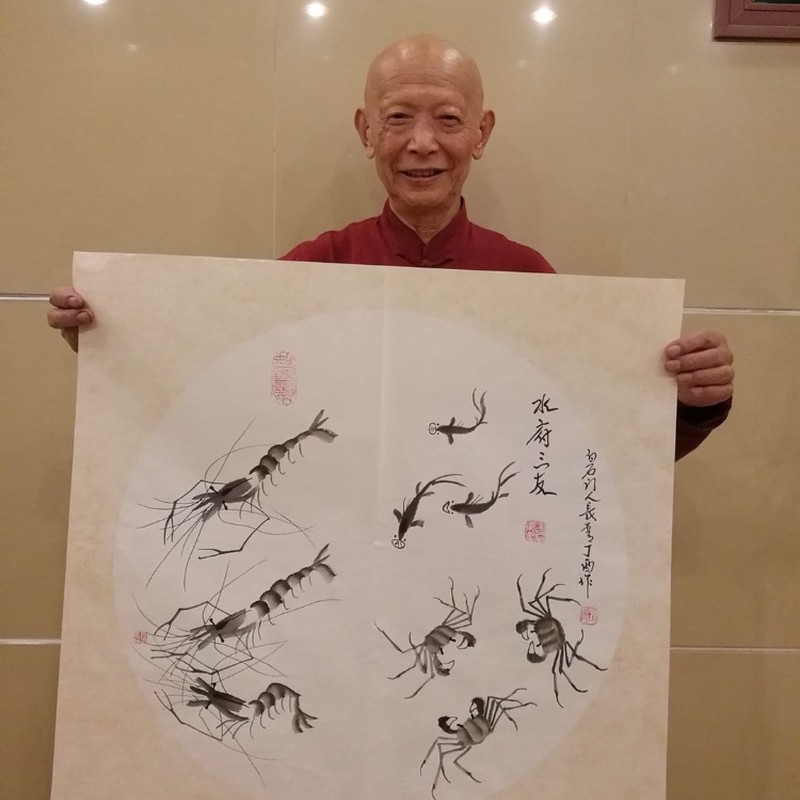 水府三友
白石门人长青丁酉作